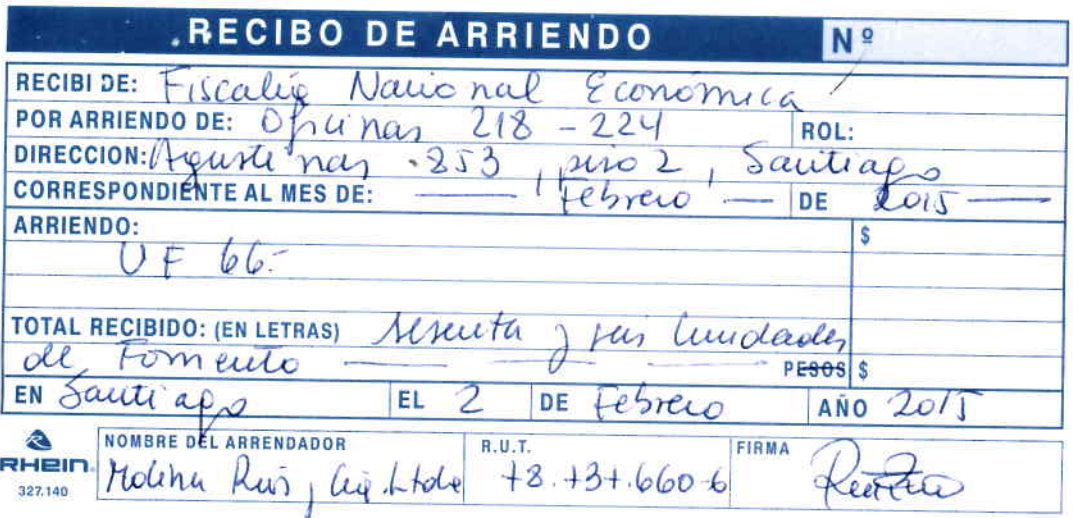 RECIBO DE ARRIENDO Nº
RECIBI DE: Fiscalía Nacional Económica
POR ARRIENDO DE: Oficinas 218 - 224 ROL:
DIRECCION: Agustinas 853, piso 2, Santiago
CORRESPONDIENTE AL MES DE: Febrero DE 2015
ARRIENDO: $
UF 66.-
TOTAL RECIBIDO: (EN LETRAS) Sesenta y seis Unidades
de Fomento PESOS $
EN Santiago EL 2 DE Febrero AÑO 2015
NOMBRE DEL ARRENDADOR R.U.T. FIRMA
RHEIN Molina Ruis, Ltda 78.737.660-6
327.140